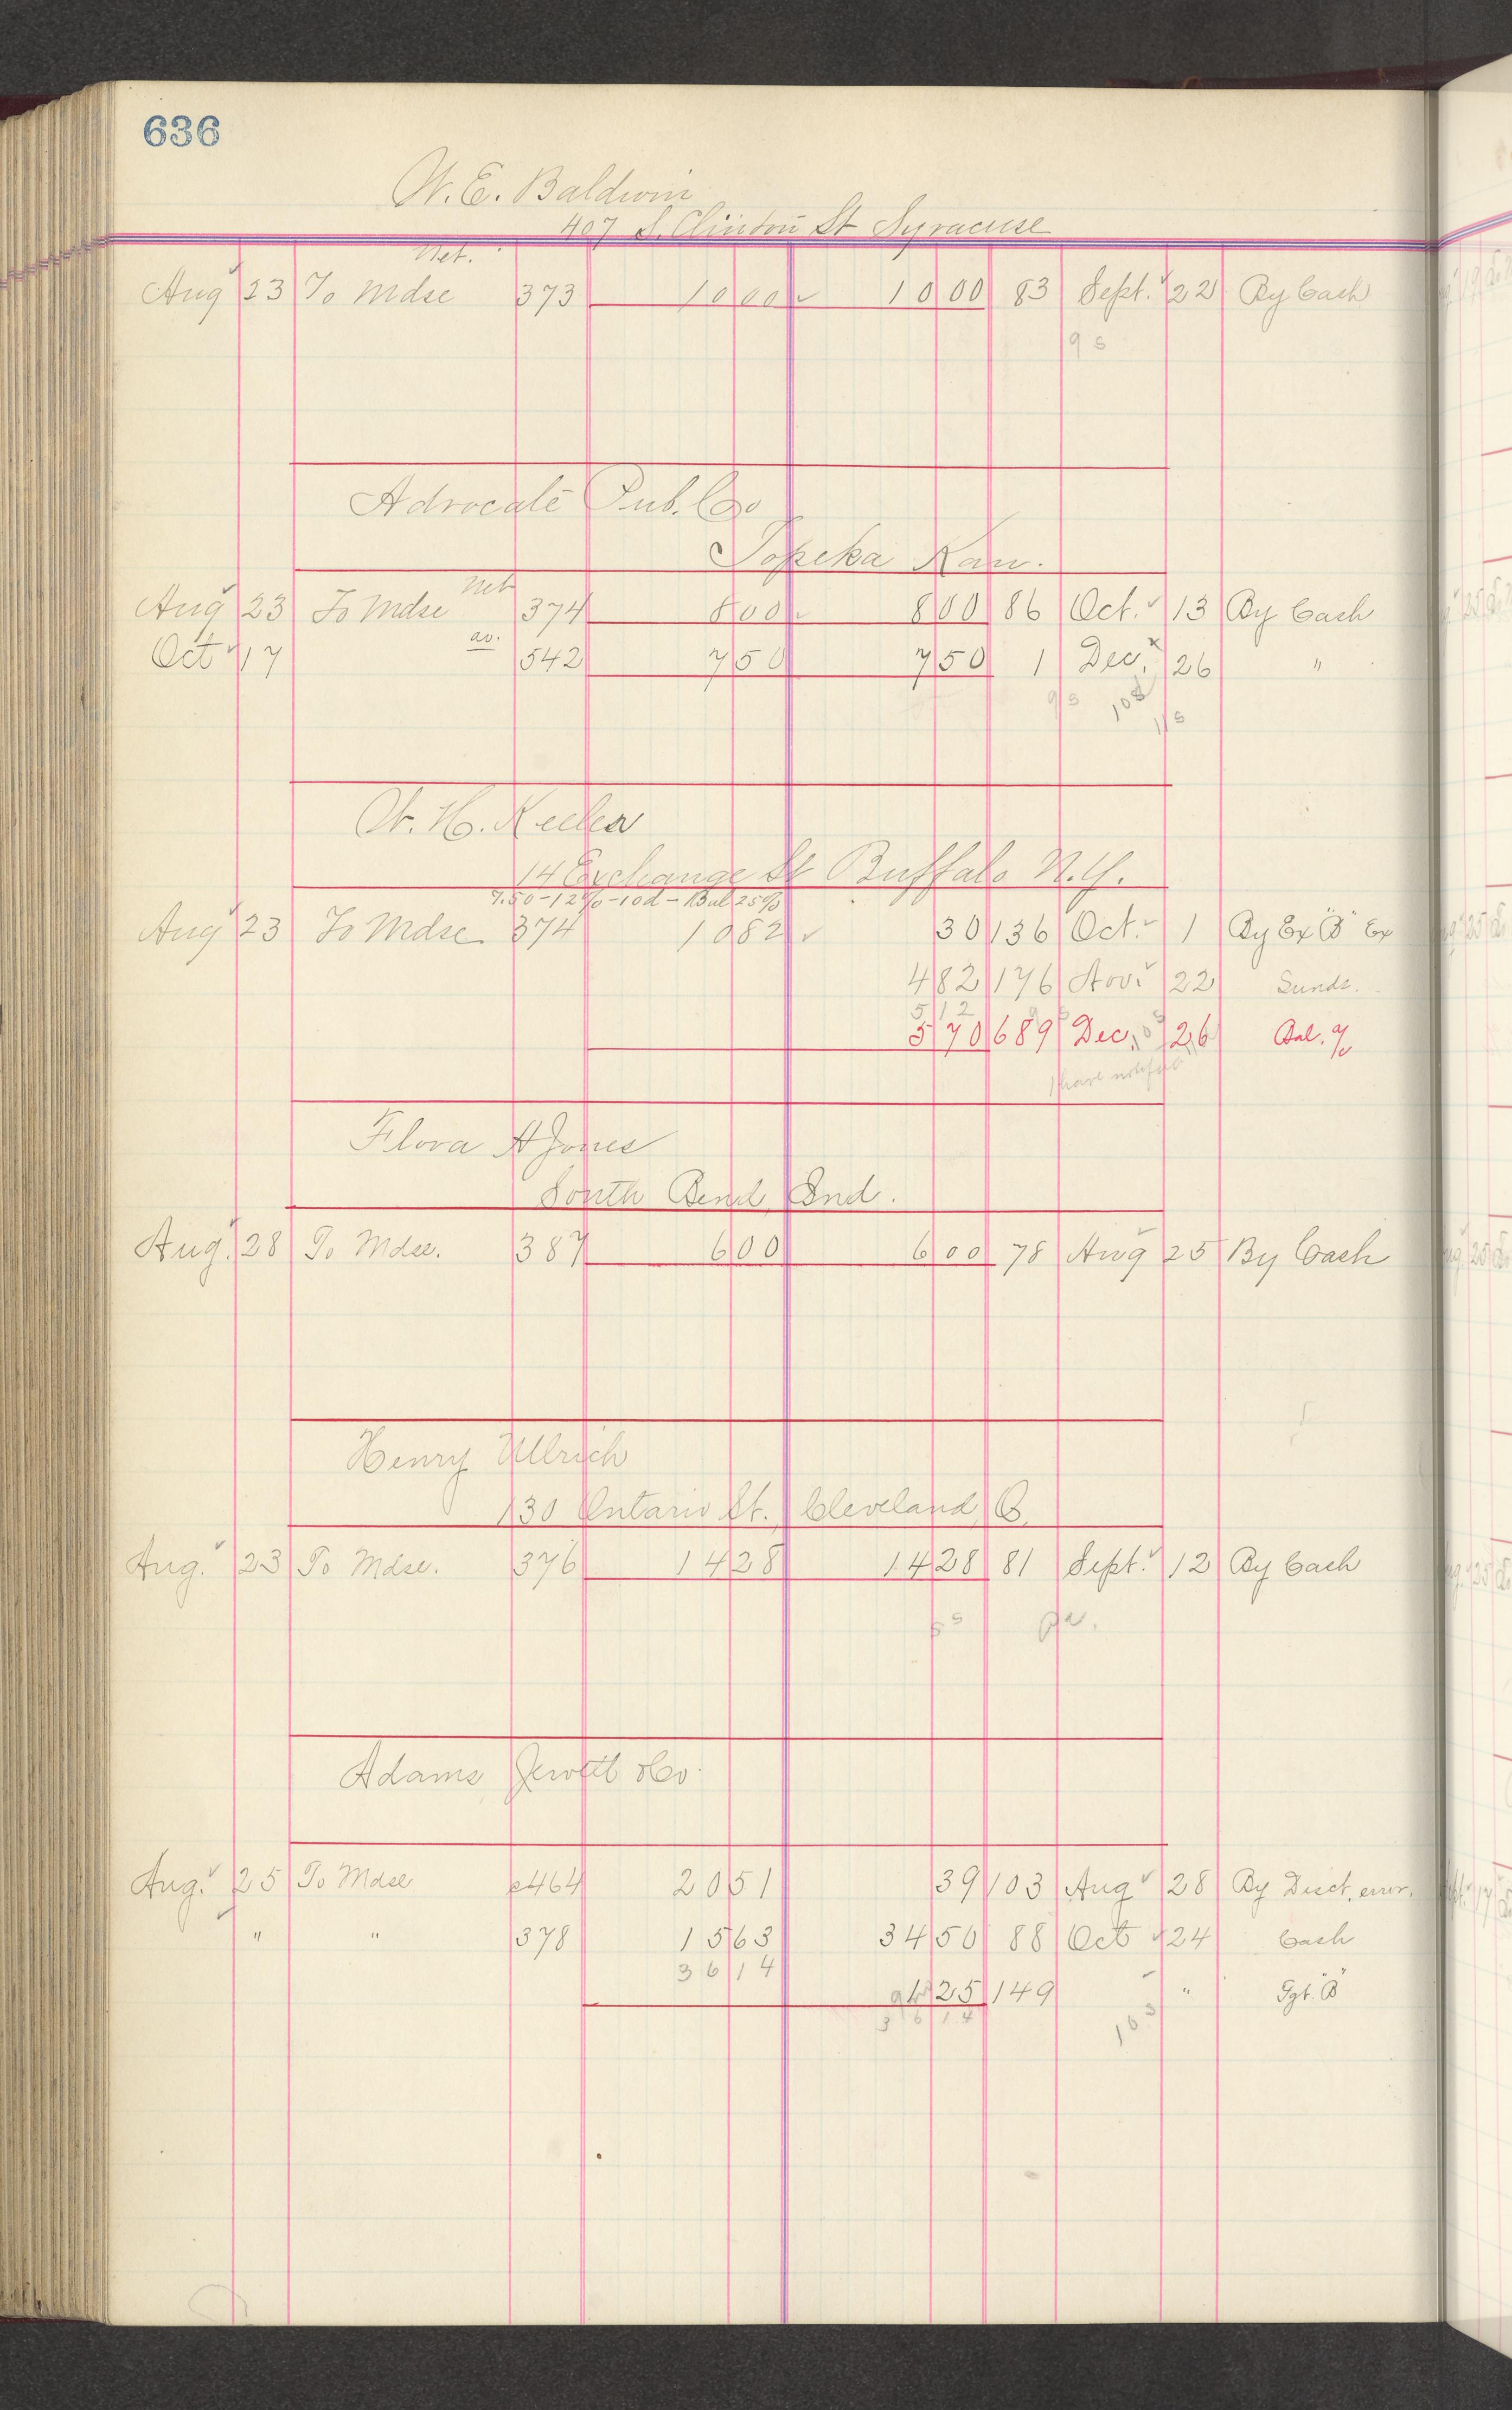 636
W. E. Baldwin
407 S. Clinton St Syracuse
Net.
Aug 23 To Mdse 373 1000 1000 83 Sept. 22 By Cash
9 s
Advocate Pub. Co
Topeka Kan.
Net
Aug 23 To Mdse 374 800 800 86 Oct. 13 By Cash
av.
Oct 17 542 750 750 1 Dec. 26 "
9 s 10 s 11 s
W. H. Keeler
14 Exchange St Buffalo N.Y.
7.50-12%-10d-Bal 25%
Aug 23 To Mdse. 374 1082 30 136 Oct. 1 By Ex "B" Ex
482 176 Nov. 22 Sunds.
512
570 689 Dec. 26 Bal. %
I have notified
Flora A Jones
South Bend, Ind.
Aug. 28 To Mdse. 387 600 600 78 Aug 25 By Cash
Henry Ullrich
130 Ontario St. Cleveland, O.
Aug. 23 To Mdse. 376 1428 1428 81 Sept. 12 By Cash
Adams Jewett & Co.
Aug. 25 To Mdse 464 2051 39 103 Aug 28 By Disct, error.
" " 378 1563 3450 88 Oct 24 Cash
3614
125 149 " Fgt. "B"
3614
10 s